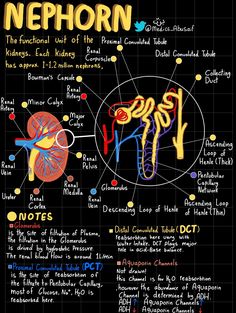 NEPHORN
@Medics.Abusaif
The functional unit of the
kidneys. Each kidney
has approx 1-1.2 million nephrons.
Proximal Convoluted Tubule
Renal
Corpuscle
Distal Convoluted Tubule
Bowman's Capsule
Collecting
Duct
Renal
Artery
Minor Calyx
Major
Calyx
Renal
Artery
Ascending
Loop of
Henle (Thick)
Renal
Vein
Renal
Pelvis
Peritubular
Capillary
Network
Glomerulus
Ureter
Renal
Cortex
Renal
Medulla
Renal
Vein
Descending Loop of Henle
Ascending
Loop of
Henle (Thin)
NOTES
Glomerulus
is the site of filtration of Plasma,
the filtration in the Glomerulus
is driven by hydraulic Pressure.
The renal blood flow is around
Proximal Convoluted Tubule (PCT)
is the site of reabsorption of
the filtrate to Peritubular Capillary,
most of Glucose, Na⁺, H₂O is
reabsorbed here.
Distal Convoluted Tubule (DCT)
reabsorption here vary with
water intake. DCT plays major
role in acid-base balance
Aquaporin Channels
Not drawn
this channel is for H₂O reabsorption
, however the abundance of Aquaporin
Channel is determined by ADH
ADH ↑ Aquaporin Channels ↑
ADH ↓ Aquaporin Channels ↓